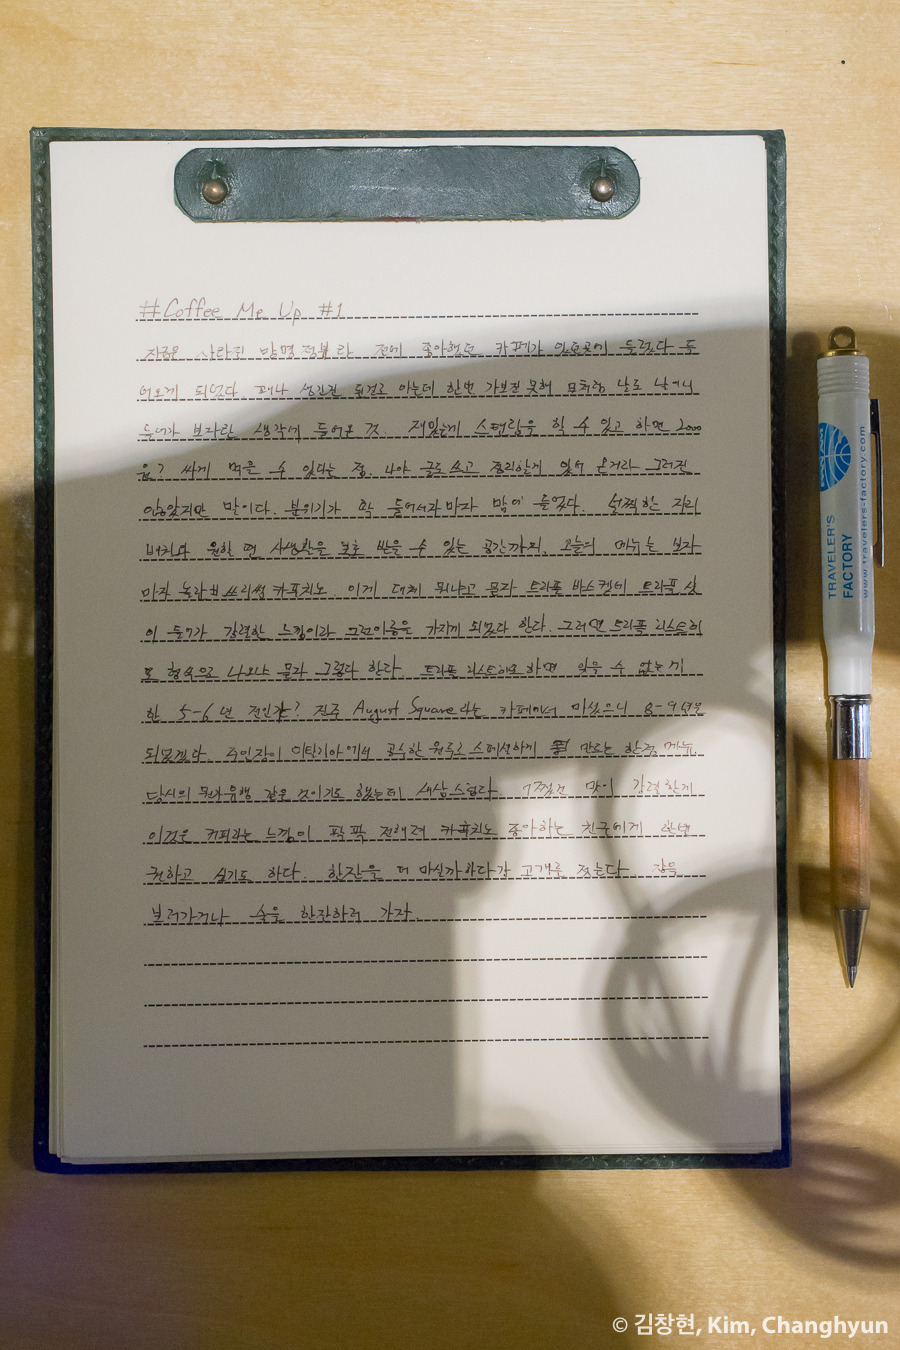 #Coffee Me Up #1
지금은 사라진 망명정부라 전에 좋아했던 카페가 있던곳에 들렀다
되었다. 꽤나 생긴건 된걸로 아는데 한번 가보질 못해 날도
들어가 보자란 생각에 들어온 것. 재밌는게 스탬핑을 할 수 있고 하면 2000
원? 싸게 먹을 수 있다는 점. 나야 글로 쓰고 정리할게 있어 온거라 그러진
않았지만 말이다. 분위기가 확 들어서자마자 맘에 들었다. 널찍한 자리
배치와 원할 땐 사생활을 보호 받을 수 있는 공간까지. 오늘의 메뉴는 보자
마자 놀라브쓰리썸카푸치노. 이게 대체 뭐냐고 묻자 트리플 바스켓에 트리플 샷
이 들어가 강렬한 느낌이라 그런이름을 가지게 되었다 한다. 그러면 트리플 리스트레
또 형식으로 나오냐 물자 그렇다 한다. 트리플 리스트레또하면 잊을 수 없는게
한 5-6년 전인가? 진주 August Square라는 카페에서 마셨으니 8-9년은
되었겠다. 주인장이 이탈리아에서 공수한 원두로 스페셜하게 만드는 한정 메뉴.
당시의 뭔가 유행 같은 것이기도 했는데 새삼스럽다. 어쨌건 맛이 강렬한게
이것은 커피라는 느낌이 팍팍 전해져 카푸치노 좋아하는 친구에게 한번
권하고 싶기도 하다. 한잔을 더 마실까하다가 고개를 젓는다 잠을
불러가거나 술을 한잔하러 가자
TRAVELER'S
FACTORY
www.travelers-factory.com
PAN AM
© 김창현, Kim, Changhyun